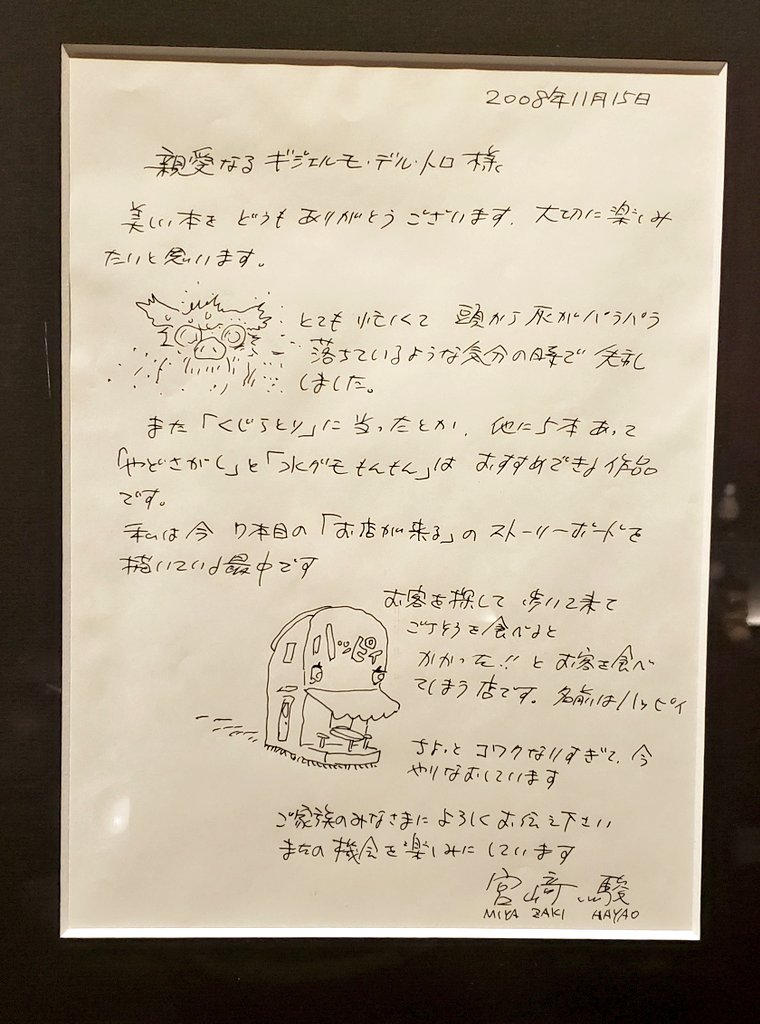 2008年11月15日
親愛なる ギジェルモ・デル・トロ 様
美しい本を どうも ありがとう ございます. 大切に楽しみ
たいと思います。
とても 忙しくて 頭から 灰がパラパラ
落ちているような気分の日々で 失礼
しました。
また「くじらとり」に 当ったとか. 他に5本 あって
「やどさがし」と「水グモもんもん」は おすすめできる 作品
です。
私は今 7本目の「お店が来る」の ストーリーボードを
描いている最中です
お客を探して 歩いて来て
ごちそうを食べると
かかった!! と お客を食べ
てしまう店です。名前はハッピィ
ハッピィ
ちょっと コワクなりすぎて、今
やりなおしています
ご家族のみなさまに よろしく お伝え下さい
またの 機会を楽しみに しています
宮﨑 駿
MIYAZAKI HAYAO